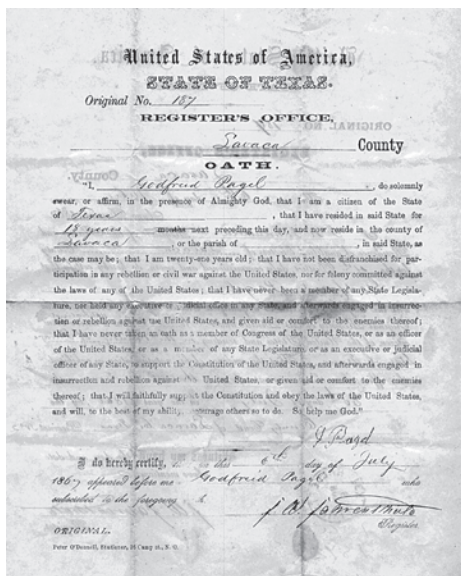 United States of America,
STATE OF TEXAS.
Original No. 157
REGISTER'S OFFICE,
Lavaca County
OATH.
"I, Godfreid Pagel, do solemnly
swear, or affirm, in the presence of Almighty God, that I am a citizen of the State
of Texas, that I have resided in said State for
13 years months next preceding this day, and now reside in the county of
Lavaca, or the parish of , in said State, as
the case may be; that I am twenty-one years old; that I have not been disfranchised for par-
ticipation in any rebellion or civil war against the United States, nor for felony committed against
the laws of any of the United States; that I have never been a member of any State Legisla-
ture, nor held any executive or judicial office in any State, and afterwards engaged in insurrec-
tion or rebellion against the United States, and given aid or comfort to the enemies thereof;
that I have never taken an oath as a member of Congress of the United States, or as an officer
of the United States, or as a member of any State Legislature, or as an executive or judicial
officer of any State, to support the Constitution of the United States, and afterwards engaged in
insurrection and rebellion against the United States, or given aid or comfort to the enemies
thereof; that I will faithfully support the Constitution and obey the laws of the United States,
and will, to the best of my ability, encourage others so to do. So help me God."
I do hereby certify, this 6th day of July
1867 appeared before me Godfreid Pagel who
subscribed to the foregoing
Register
ORIGINAL.
Peter O'Donnell, Stationer, 16 Camp st., N. O.